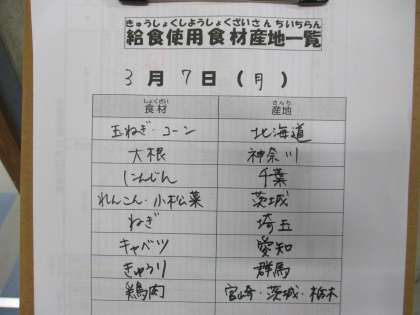 きゅうしょくしようしょくざいさんちいちらん
給食使用食材産地一覧
3月7日(月)
しょくざい さんち
食材 産地
玉ねぎ・コーン 北海道
大根 神奈川
にんじん 千葉
れんこん・小松菜 茨城
ねぎ 埼玉
キャベツ 愛知
きゅうり 群馬
鶏肉 宮崎・茨城・栃木